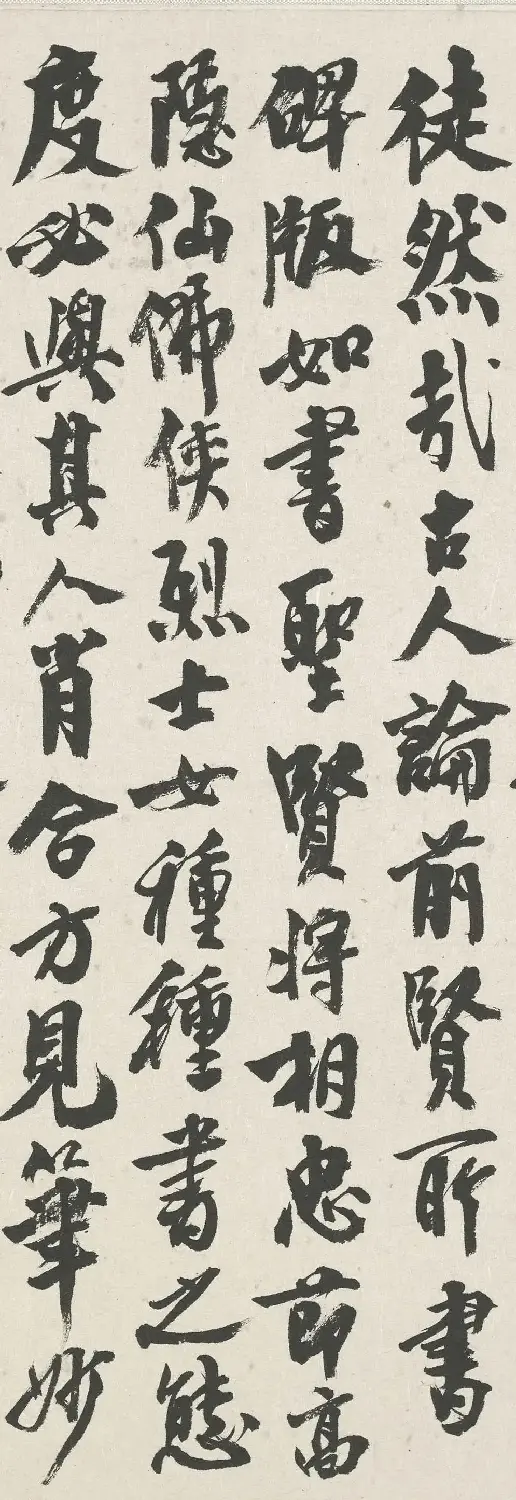 徒然哉古人論前賢所書
碑版如書聖賢將相忠節高
隱仙佛俠烈士女種種書之態
度必與其人肖合方見筆妙